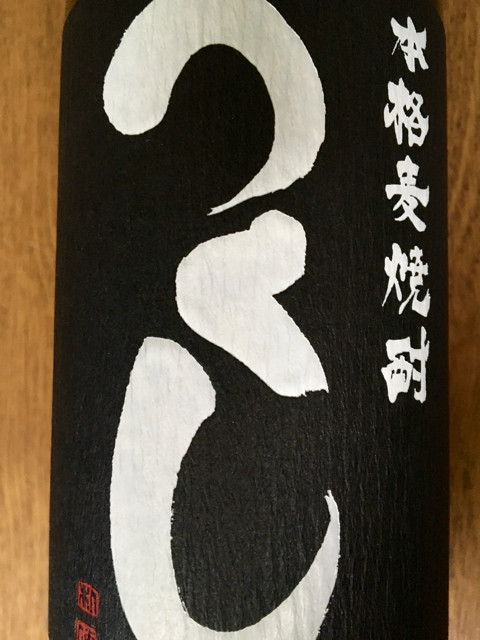 本格麦焼酎
つくし